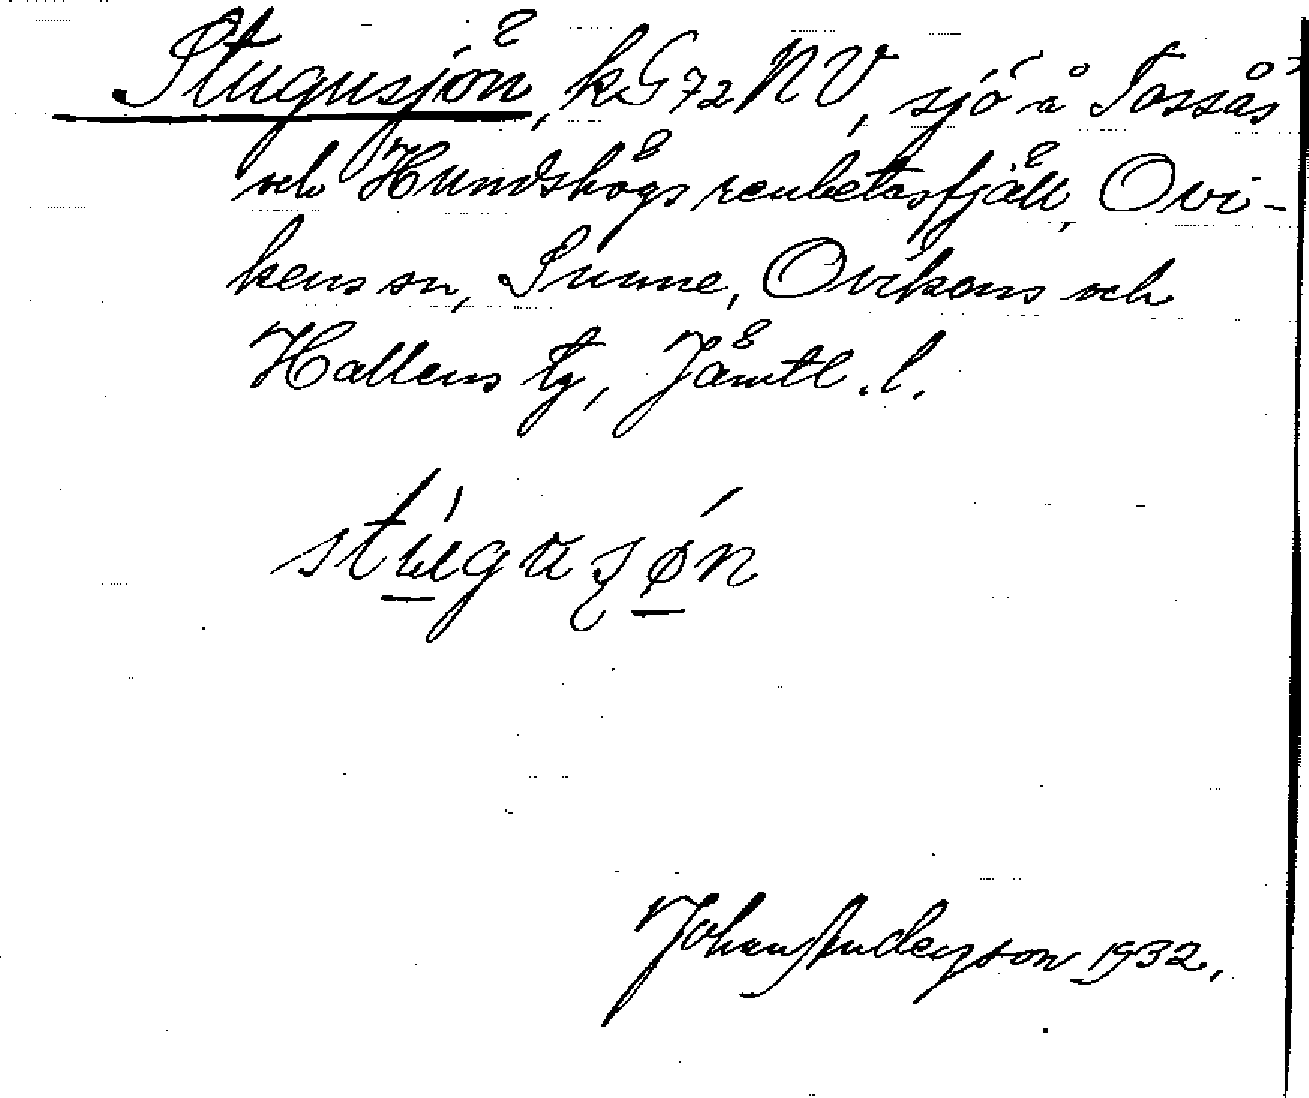 Stugusjön, kG72NV, sjö å Tossås
och Hundshögs renbetesfjäll, Ovi-
kens sn, Sunne, Ovikens och
Hallens tg, Jämtl. l.
stúgusǿn
Johan Anderson 1932.